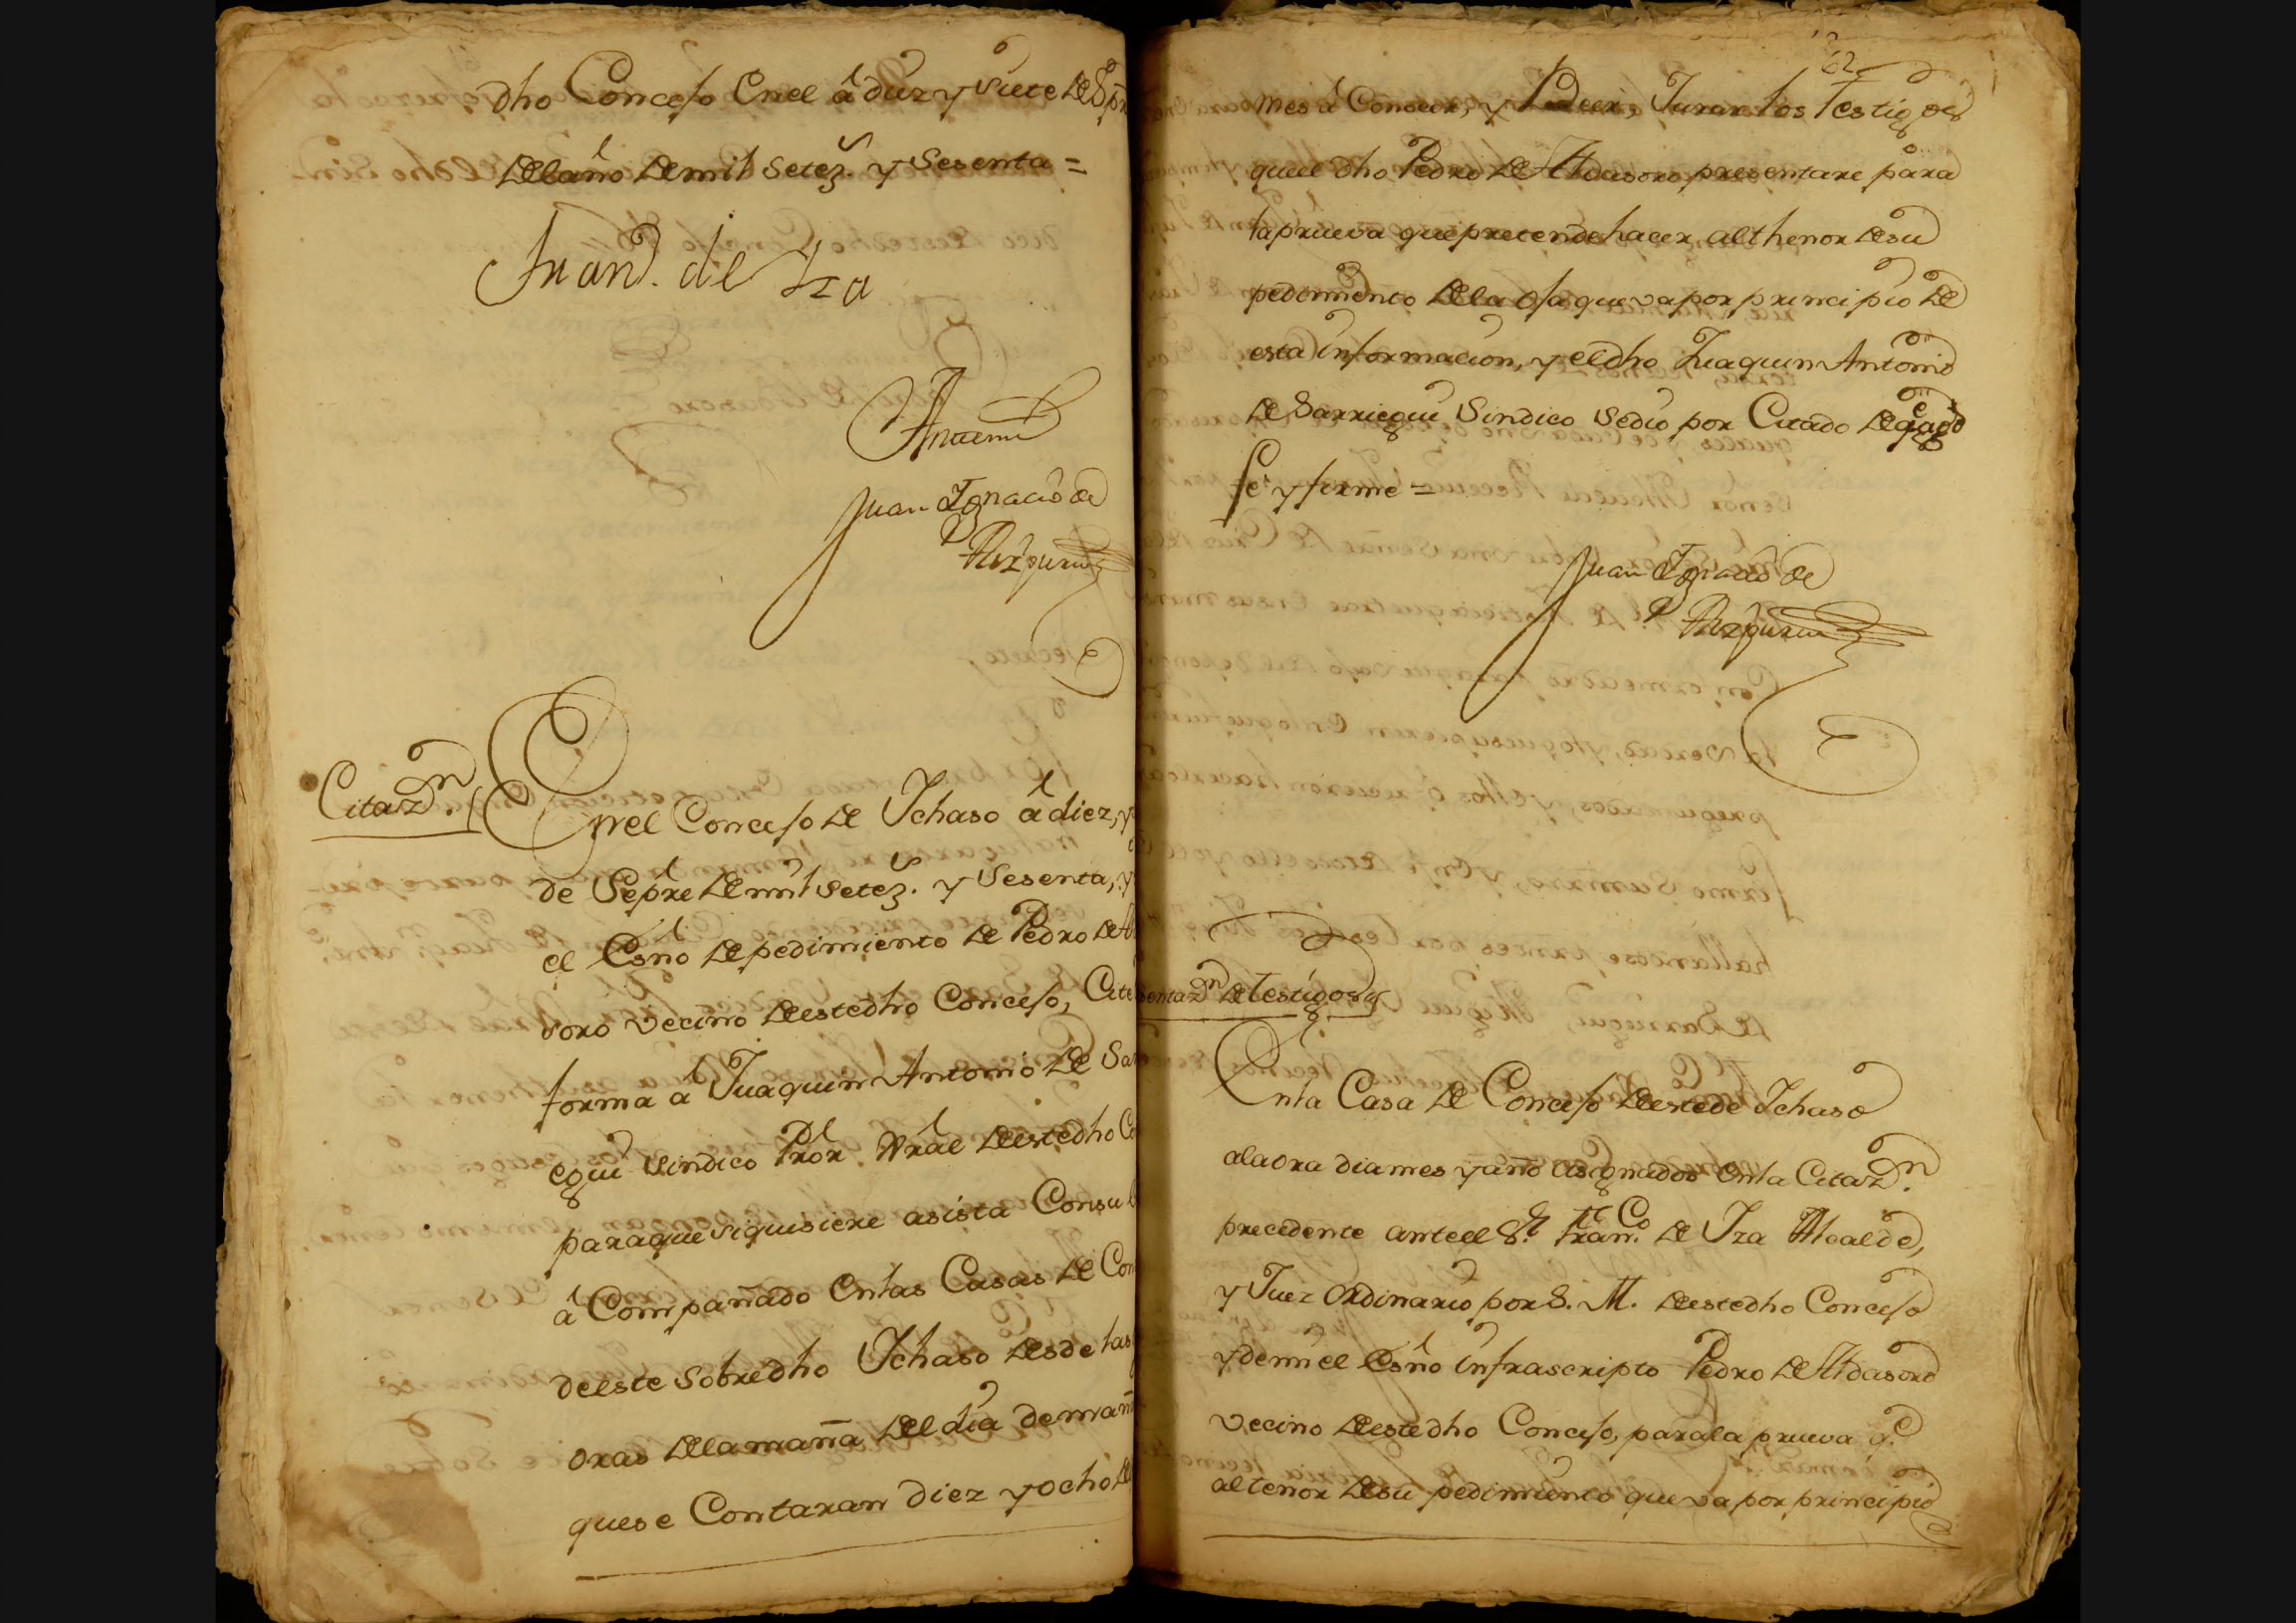 dho Concejo Enel â diez y Siete de Sep̃re
Del año De mil Setez.s y Sesenta =
Fran.co de Iza
Antemi
Juan Ignacio de
Citaz.n
Enel Concejo De Ichaso â diez, y
de Sep̃re De mil Setez.s y Sesenta, y
el Esño De pedimiento De Pedro De Al
soro vecino Deestedho Concejo, Cite
forma â Juaquin Antonio De Sar
egui Sindico Pror. Gr̃al Deestedho Co
paraque siquisiere asista Con su
â Compañado Enlas Casas De Con
deeste Sobredho Ichaso Desde las
oras Dela mañã Del dia demañ
quese Contaran Diez y ocho De
62
mes â Conocer, y Veer, Jurar los Testigos
queel dho Pedro De Aldasoro presentare para
la prueva que pretende hacer al thenor Desu
pedimiento Dela oja que va por principio De
esta informacion, y el dho Juaquin Antonio
De Sarriegui Sindico Sedio por Citado De que doy
feè y firmé =
Juan Ignacio de
sentaz.n De Testigos
Enla Casa De Concejo Deeste de Ichaso
ala ora dia mes y año asignados Enla Citaz.n
precedente anteel S.r Fran.co De Iza Alcalde,
y Juez Ordinario por S. M. Deestedho Concejo
y demi el Esño infrascripto Pedro De Aldasoro
vecino Deestedho Concejo, para la prueva q.e
al tenor Desu pedimiento que va por principio